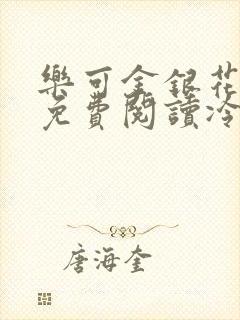 樂可金銀花
免費閱讀冷
唐海奎